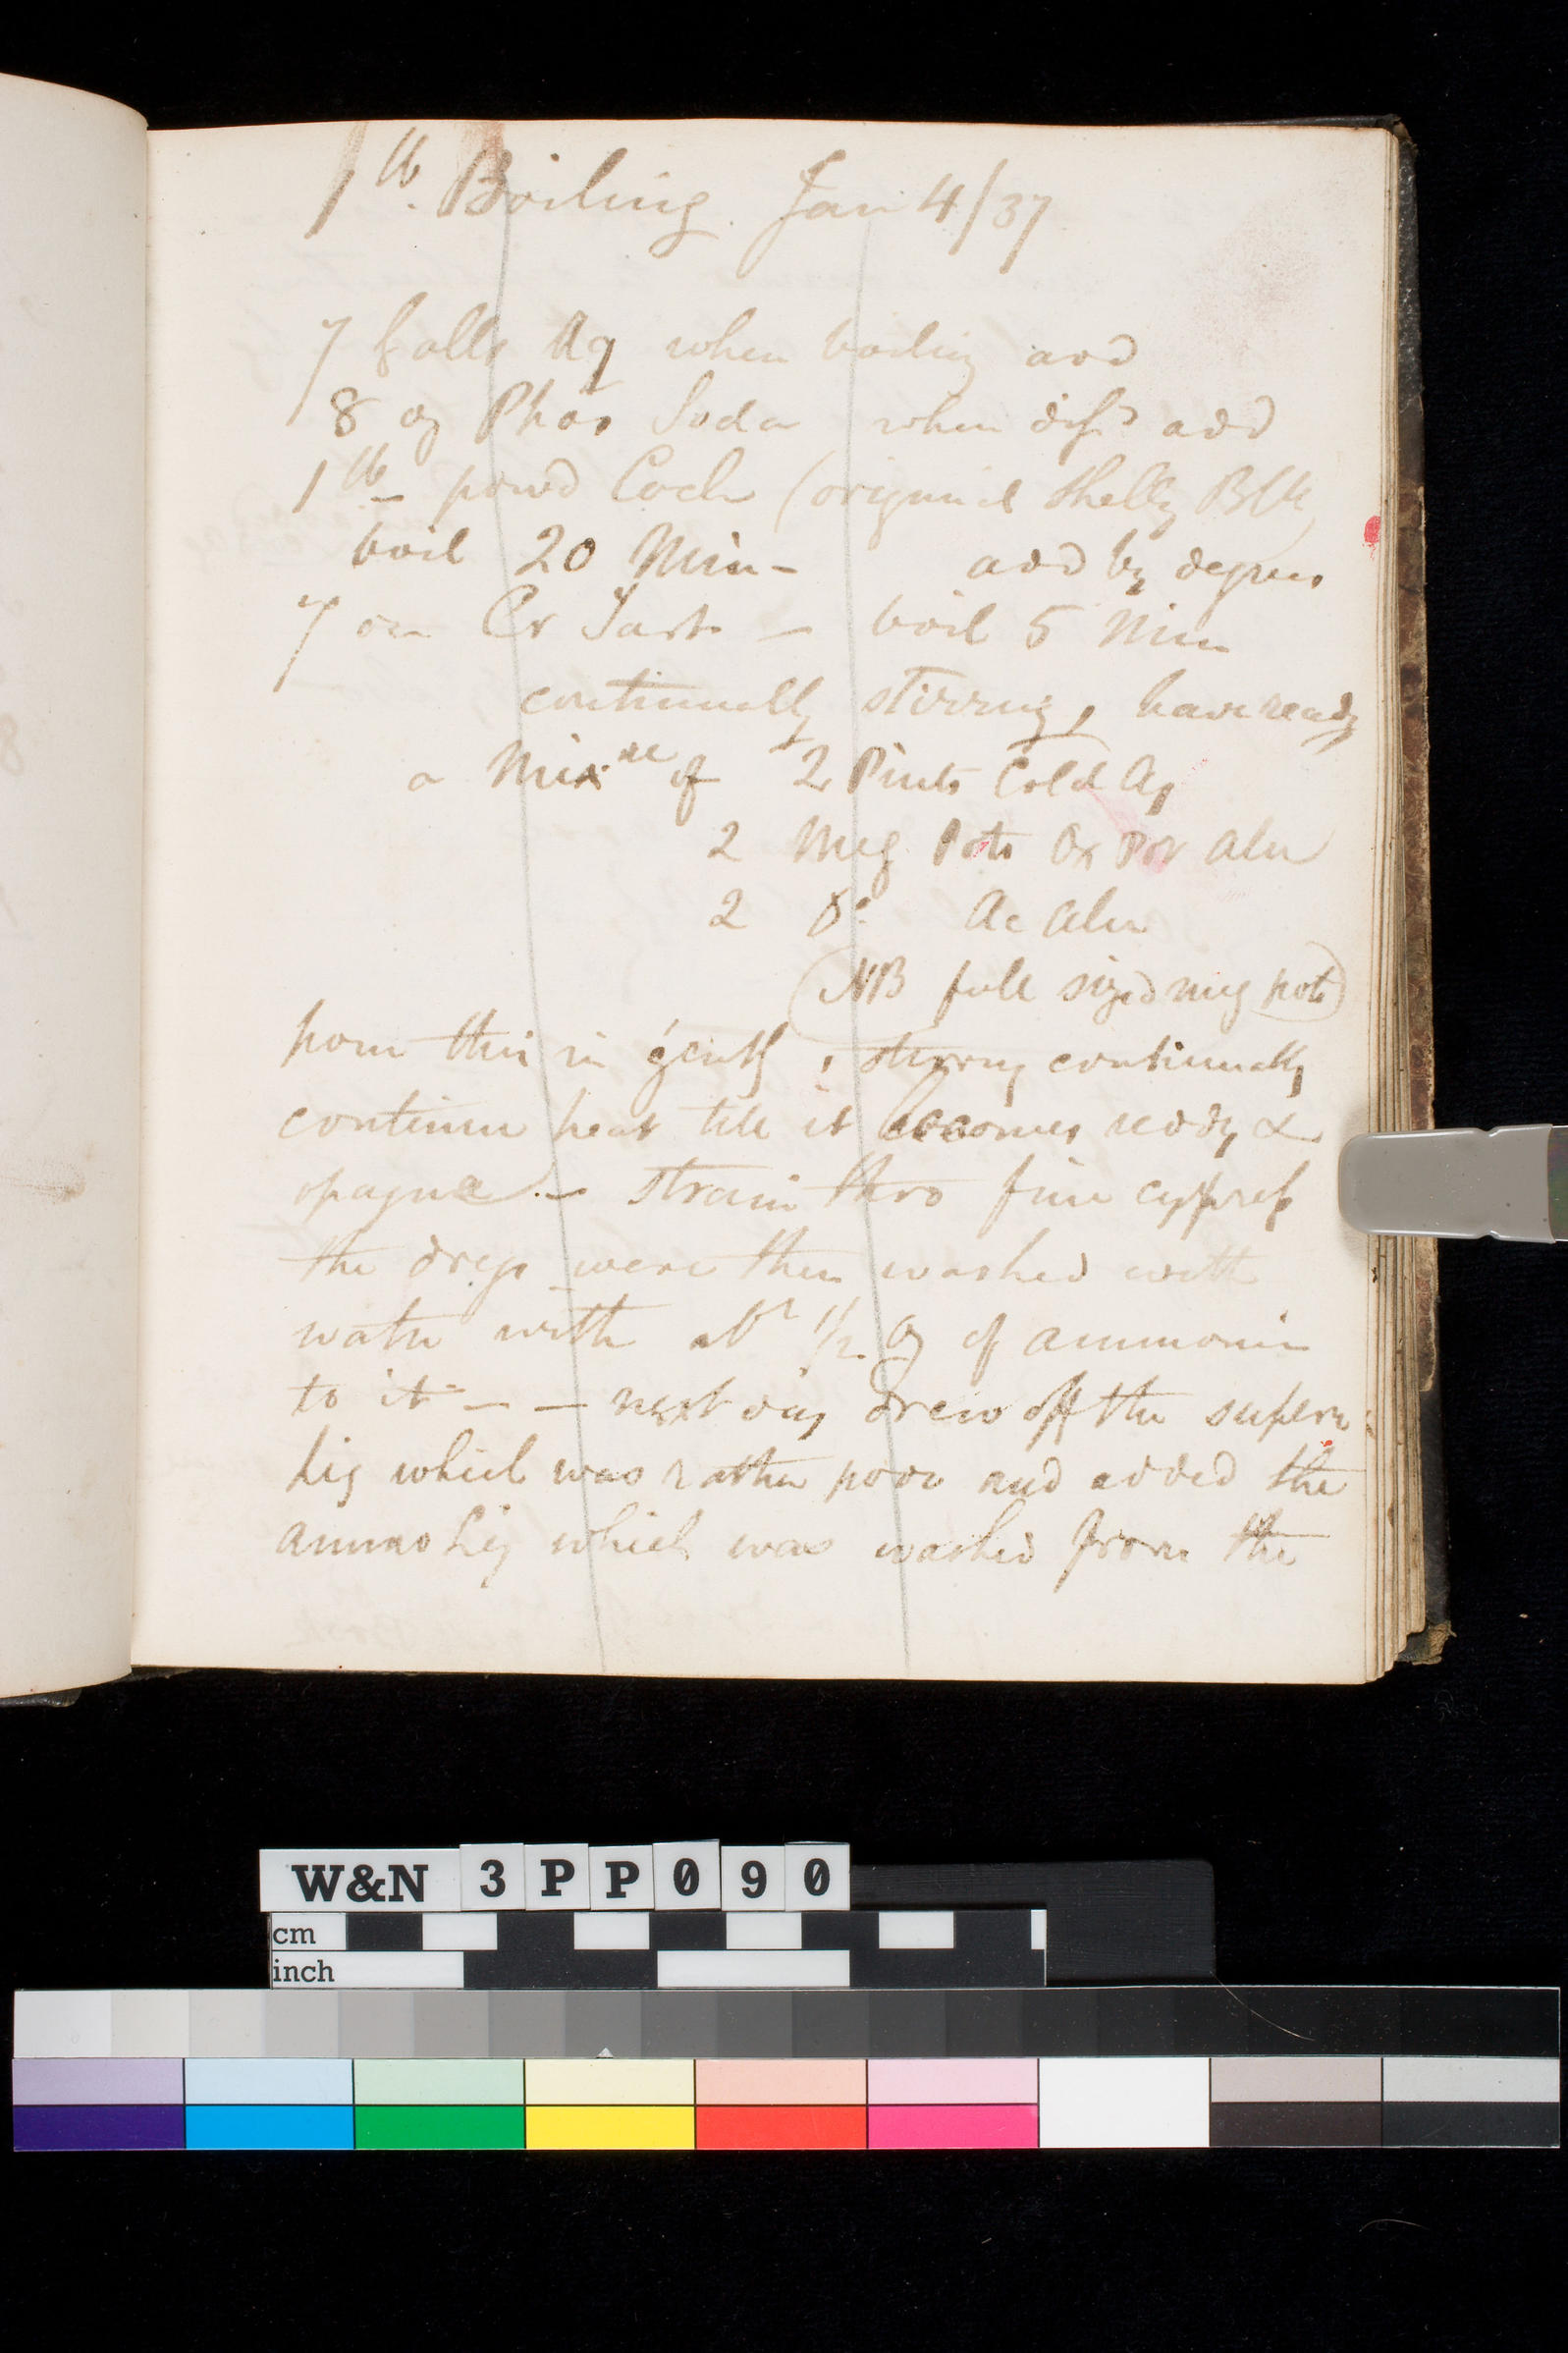 1 lb. Boiling. Jan 4/37
7 Galls Aq when boiling add
8 oz Phos Soda when disd add
1 lb - powd Coch (original Shelly Blk
boil 20 Min - add by degrees
7 oz Cr Tart - boil 5 Min
continually stirring, have ready
a Mixre of 2 Pints Cold Aq
2 Meg Pots Ox Pot Alu
2 Do Ac Alu
(NB full sized meg pots)
pour this in gently, stirring continually
continue heat till it becomes reddy &
opaque. - strain thro fine cypress
the dregs were then washed with
water with abt 1/2 oz of ammonia
to it - - next day drew off the supern
Liq which was rather poor and added the
ammo Liq which was washed from the
W&N 3PP090
cm
inch